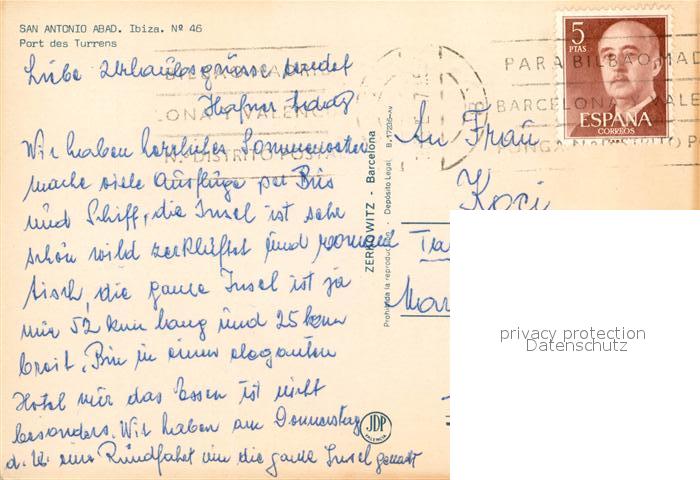 SAN ANTONIO ABAD. Ibiza. Nº 46
Port des Turrens
Liebe Urlaubsgrüsse sendet
Hafner
Wir haben herrliches Sommerwetter
mache viele Ausflüge per Bus
und Schiff, die Insel ist sehr
schön wild zerklüftet und roman
tisch, die ganze Insel ist ja
nur 52 km lang und 25 km
breit. Bin in einem eleganten
Hotel nur das Essen ist nicht
besonders. Wir haben am Donnerstag
d. 16 eine Rundfahrt um die ganze Insel gemacht
ZERKOWITZ - Barcelona
Prohibida la reproducción - Depósito Legal B. 17235-
JDP
VALENCIA
5
PTAS
ESPAÑA
CORREOS
PARA BILBAO, MAD
BARCELONA VALE
PONGA Nº DISTRITO PO
LONA Y VALENCI
Nº DISTRITO POSTA
An Frau
Koci
privacy protection
Datenschutz